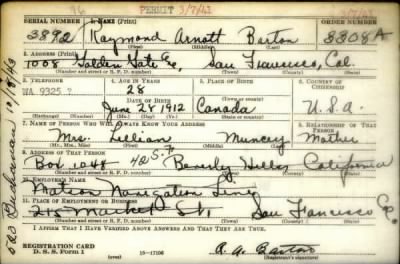 96 PERMIT 3/7/42
SERIAL NUMBER 1. NAME (Print) ORDER NUMBER
3892 Raymond Arnott Barton 3308A
(First) (Middle) (Last)
2. ADDRESS (Print)
1008 Golden Gate Ave, San Francisco, Cal.
(Number and street or R. F. D. number) (Town) (County) (State)
3. TELEPHONE 4. AGE IN YEARS 5. PLACE OF BIRTH 6. COUNTRY OF CITIZENSHIP
WA. 9325 28
DATE OF BIRTH Canada U.S.A.
June 28 1912
(Exchange) (No.) (Mo.) (Day) (Yr.) (State or country)
7. NAME OF PERSON WHO WILL ALWAYS KNOW YOUR ADDRESS 8. RELATIONSHIP OF THAT PERSON
Mrs. Lillian Muncey Mother
(Mr., Mrs., Miss) (First) (Middle) (Last)
9. ADDRESS OF THAT PERSON
Box 1048 Beverly Hills California
(Number and street or R. F. D. number) (Town) (County) (State)
10. EMPLOYER'S NAME
Matson Navigation Line
11. PLACE OF EMPLOYMENT OR BUSINESS
215 Market St, San Francisco
(Number and street or R. F. D. number) (Town) (County) (State)
I AFFIRM THAT I HAVE VERIFIED ABOVE ANSWERS AND THAT THEY ARE TRUE.
REGISTRATION CARD
D. S. S. Form 1 16—17106 R. A. Barton
(Registrant's signature)